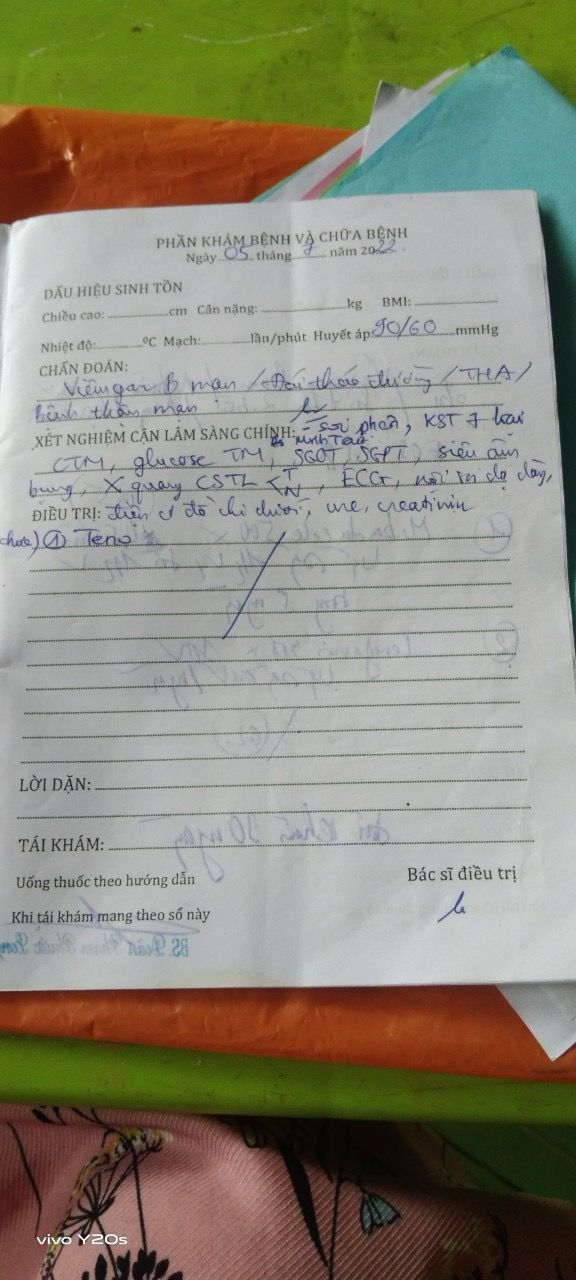 PHẦN KHÁM BỆNH VÀ CHỮA BỆNH
Ngày 05 tháng 7 năm 2022
DẤU HIỆU SINH TỒN
Chiều cao: cm Cân nặng: kg BMI:
Nhiệt độ: ºC Mạch: lần/phút Huyết áp: 90/60 mmHg
CHẨN ĐOÁN:
Viêm gan B mạn / Đái tháo đường / THA /
Bệnh thận mạn
XÉT NGHIỆM CẬN LÂM SÀNG CHÍNH: Soi phân, KST 7 loại
CTM, glucose TM, SGOT, SGPT, siêu âm
bụng, X quang CSTL T N, ECG, nội soi dạ dày,
ĐIỀU TRỊ: điện đồ chi dưới, ure, creatinin
1 Teno
LỜI DẶN:
TÁI KHÁM:
Uống thuốc theo hướng dẫn
Bác sĩ điều trị
Khi tái khám mang theo sổ này
vivo Y20s